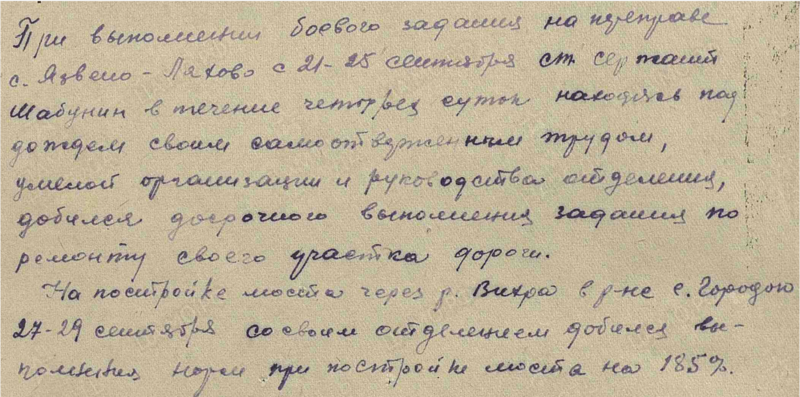 При выполнении боевого задания на переправе
с. Язвено-Ляхово с 21-25 сентября ст. сержант
Шабунин в течение четырех суток находясь под
дождем своим самоотверженным трудом,
умелой организации и руководства отделения,
добился досрочного выполнения задания по
ремонту своего участка дороги.
На постройке моста через р. Вихра в р-не с. Городок
27-29 сентября со своим отделением добился вы-
полнения норм при постройке моста на 185%.